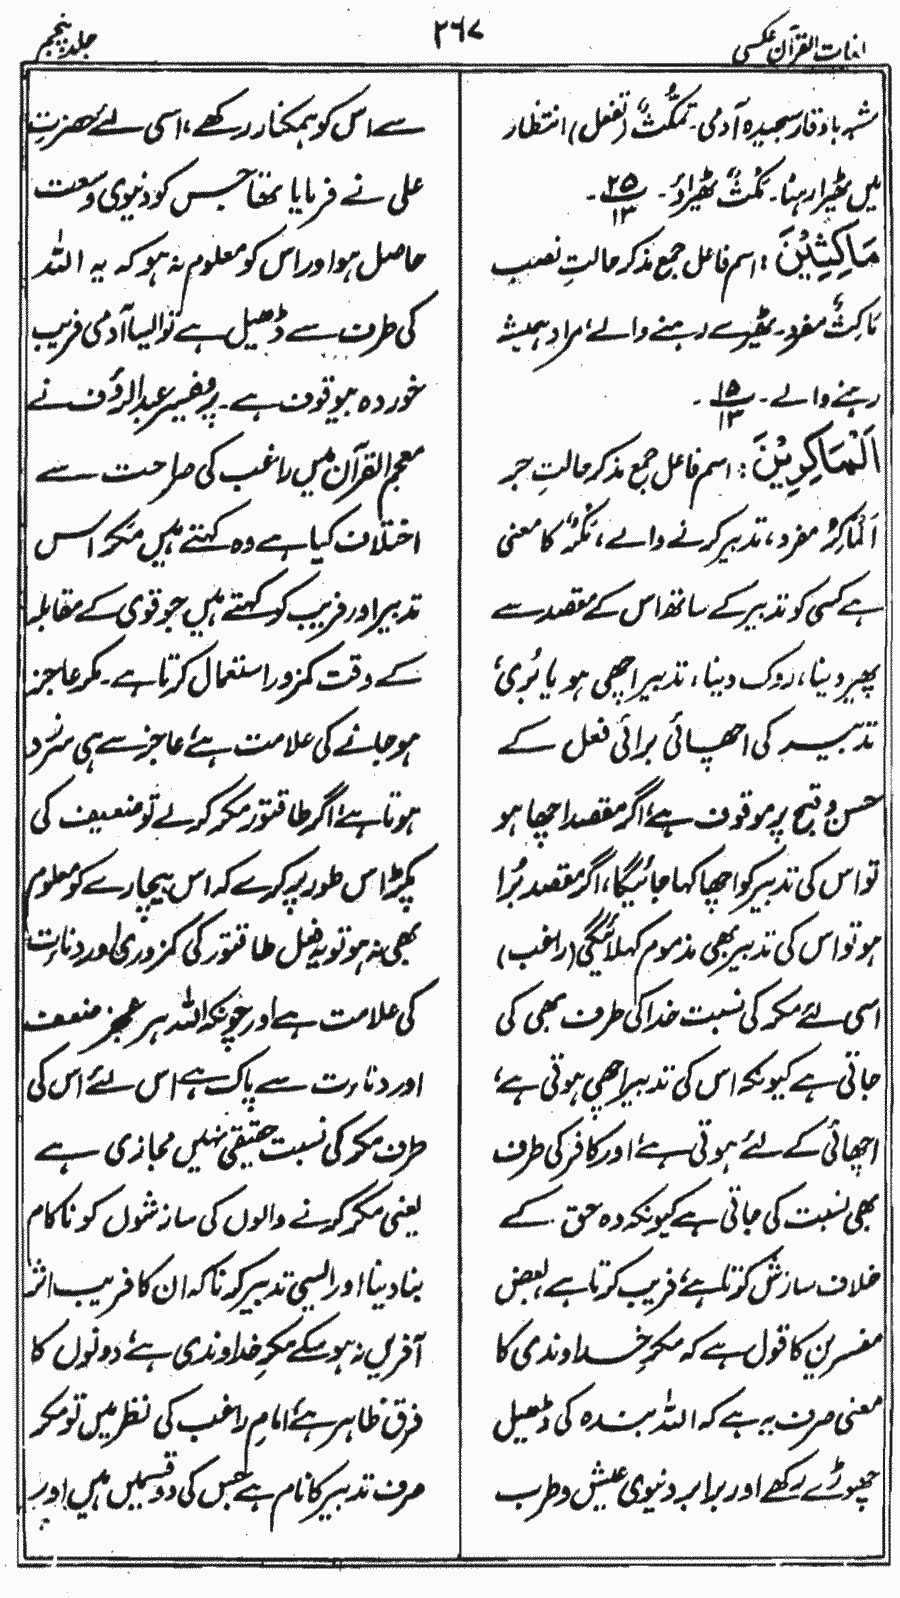 لغات القرآن عکسی
۲۶۷
جلد پنجم
شہر باوقار سنجیدہ آدمی۔ تَمَکُّثٌ (تفعل) انتظار
میں ٹھیرا رہنا۔ مُکْثٌ ٹھیراؤ۔ ۲۵/۱۳۔
مَاکِثِیْنَ : اسم فاعل جمع مذکر حالتِ نصب
مَاکِثٌ مفرد۔ ٹھیرے رہنے والے، مراد ہمیشہ
رہنے والے۔ ۱۵/۱۳۔
اَلْمَاکِرِیْنَ : اسم فاعل جمع مذکر حالتِ جر
اَلْمَاکِرُ مفرد، تدبیر کرنے والے، مَکْرٌ کا معنی
ہے کسی کو تدبیر کے ساتھ اس کے مقصد سے
پھیر دینا، روک دینا، تدبیر اچھی ہو یا بُری،
تدبیر کی اچھائی برائی فعل کے
حسن و قبح پر موقوف ہے، اگر مقصد اچھا ہو
تو اس کی تدبیر کو اچھا کہا جائیگا، اگر مقصد بُرا
ہو تو اس کی تدبیر بھی مذموم کہلائیگی (راغب)
اسی لئے مکر کی نسبت خدا کی طرف بھی کی
جاتی ہے کیونکہ اس کی تدبیر اچھی ہوتی ہے،
اچھائی کے لئے ہوتی ہے، اور کافر کی طرف
بھی نسبت کی جاتی ہے کیونکہ وہ حق کے
خلاف سازش کرتا ہے، فریب کرتا ہے، بعض
مفسرین کا قول ہے کہ مکرِ خداوندی کا
معنی صرف یہ ہے کہ اللہ بندہ کی ڈھیل
چھوڑے رکھے اور برابر دنیوی عیش و طرب
سے اس کو ہمکنار رکھے، اسی لئے حضرت
علی نے فرمایا تھا جس کو دنیوی وسعت
حاصل ہو اور اس کو معلوم نہ ہو کہ یہ اللہ
کی طرف سے ڈھیل ہے تو ایسا آدمی فریب
خوردہ بیوقوف ہے۔ پروفیسر عبدالرؤف نے
معجم القرآن میں راغب کی صراحت سے
اختلاف کیا ہے وہ کہتے ہیں مکر اس
تدبیر اور فریب کو کہتے ہیں جو قوی کے مقابلہ
کے وقت کمزور استعمال کرتا ہے۔ مکر عاجز
ہو جانے کی علامت ہے، عاجز سے ہی سرزد
ہوتا ہے، اگر طاقتور مکر کرے تو ضعیف کی
پکڑ اس طور پر کرے کہ اس بیچارے کو معلوم
بھی نہ ہو تو یہ فعل طاقتور کی کمزوری اور دناءت
کی علامت ہے اور چونکہ اللہ ہر عجز ضعف
اور دناءت سے پاک ہے اس لئے اس کی
طرف مکر کی نسبت حقیقی نہیں مجازی ہے
یعنی مکر کرنے والوں کی سازشوں کو ناکام
بنا دینا اور ایسی تدبیر کرنا کہ ان کا فریب اثر
آفریں نہ ہو سکے مکرِ خداوندی ہے، دونوں کا
فرق ظاہر ہے، امام راغب کی نظر میں تو مکر
صرف تدبیر کا نام ہے جس کی دو قسمیں ہیں اور